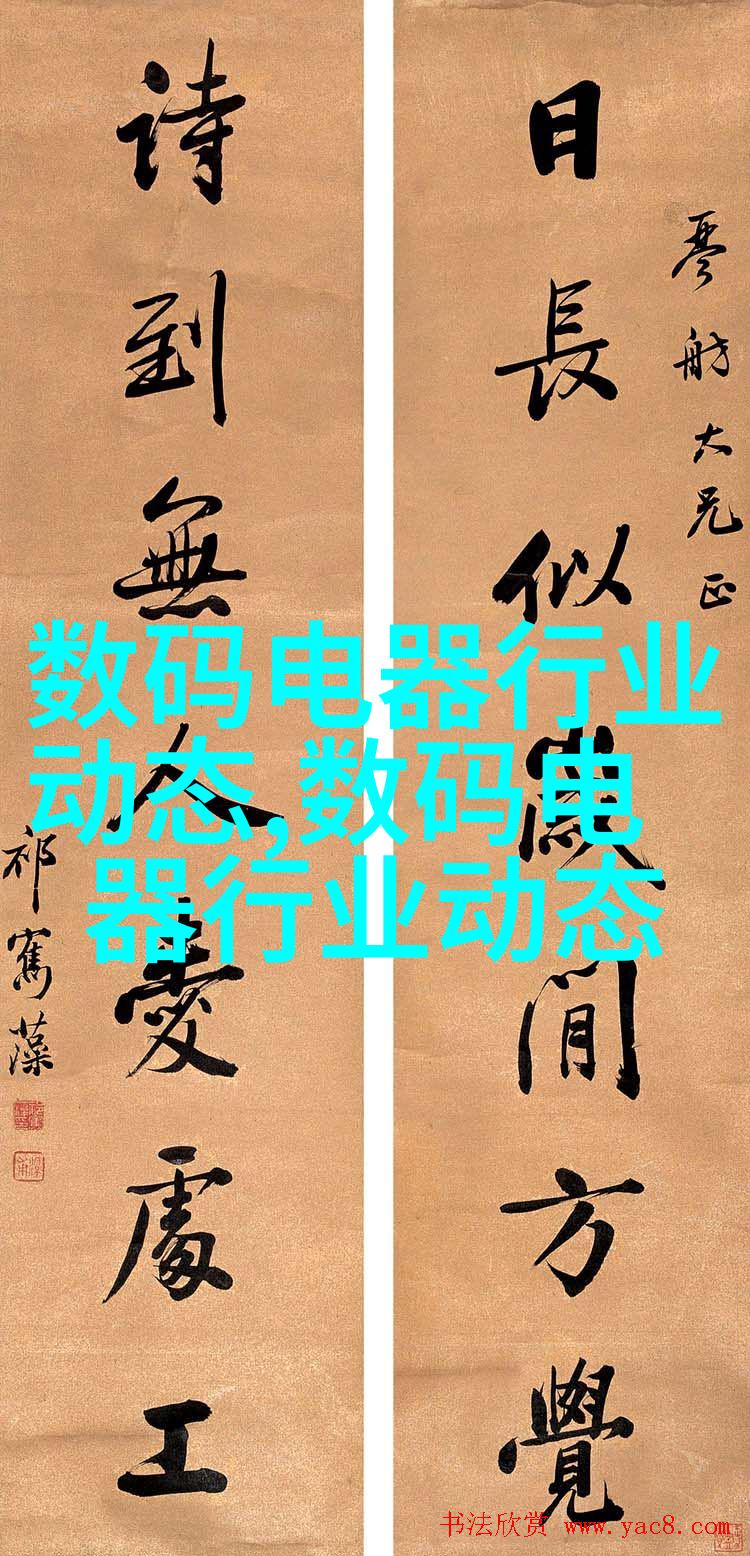 琴舫大兄正
日長似歲閒方覺
詩到無人愛處工
祁寯藻
数码电器行业
动态,数码电
器行业动态
书法欣赏 www.yac8.com